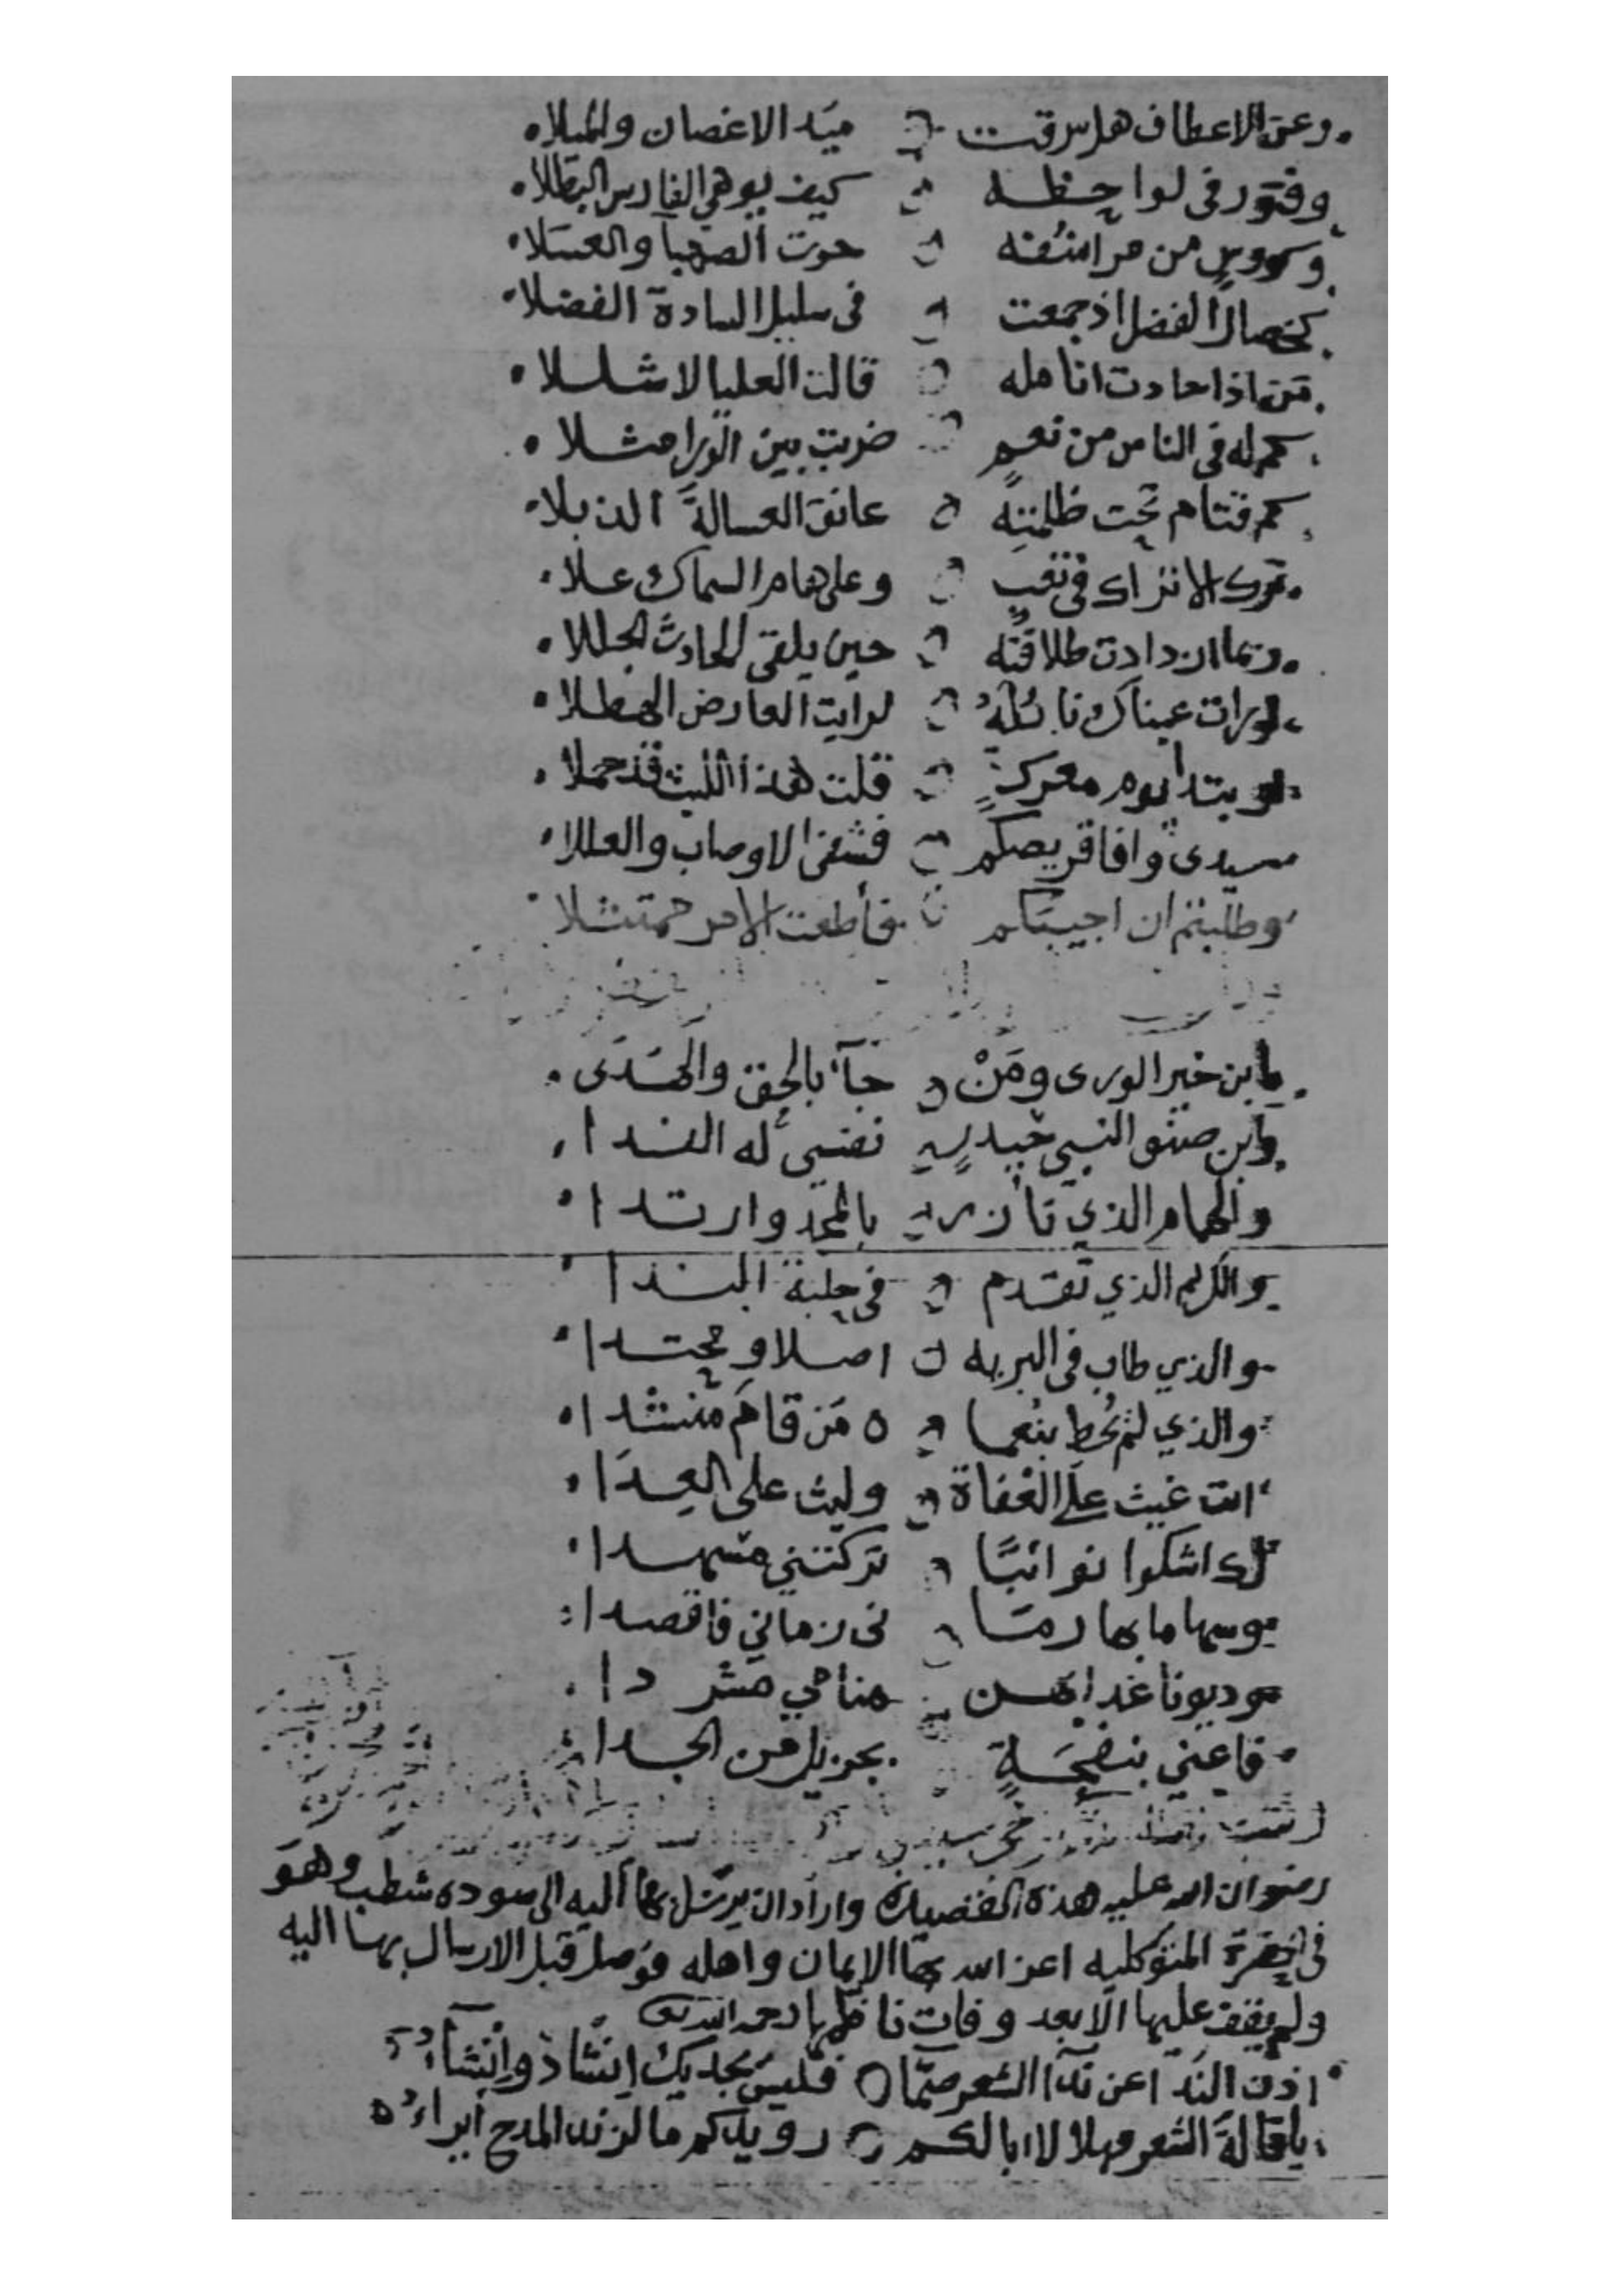 وعن الاعطاف هل سرقت ميَد الاغصان والميلا
وفتور فى لواحظه كيف يوهي الفارس البطلا
وكووسٍ من مراشفه حوت الصهبا والعسَلا
كخصال الفضل اذ جمعت فى سليل السادة الفضلا
مَن اذا جادت انامله قالت العليا لا شللا
كم له فى الناس من نعمٍ ضربت بين الورا مثلا
كم قتام تحت ظلمتِه عانق العسالةَ الذبلا
ترك الاتراك فى تعبٍ وعلى هام السماك علا
زادت طلاقتُه حين يلقى الحادثَ الجللا
لو رات عيناك نائلهُ لرايت العارض الهطلا
لو بتدا يوم معركةٍ قلت هذا الليث قد حملا
سيدى وافا قريضكم فشفى الاوصاب والعللا
وطلبتم ان اجيبَكم فأطعت الامر ممتثلا
يا بن خير الورى ومَنْ جَآء بالحق والهُدَى
وابن صنو النبي حيدرٍ نفسي له الفدا
والهمام الذي تأزر بالمجد وارتدا
والكريم الذي تقدم فى حلبة الندا
والذي طاب فى البريه اصلا ومحتدا
والذي لم يُحط بنُعما ه مَن قامَ منشدا
انت غيث على العُفاة وليث على العِدَا
لك اشكوا نوائبًا تركتني مسهدا
وسهاما بها رمَا نى زماني فاقصدا
وديونا غدا لهن منامي مشردا
فاعني بنفحَةٍ بجزيل من الجدا
رضوان الله عليه هذه القصيده واراد ان يرسَل بها اليه الى سوده شطب وهوَ
فى الحضرة المتوكليه اعز الله بها الايمان واهله فوَصل قبل الارسال بها اليه
ولم يقف عليها الّا بعد وفات ناظمها رحمه الله
اذن الندَا عن نِدَا الشعر صمّا فليسَ يجديك اِنشاد واِنْشآءُ
يا قالةَ الشعر مهلا لا ابا لكم رويدكم ما لزند المدح ابراءُ